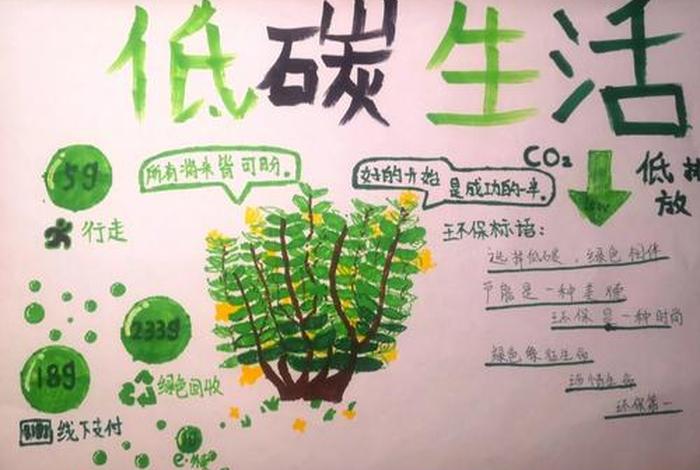 低碳生活
5g
行走
所有将来皆可盼。
好的开始是成功的一半。
CO₂
低排放
233g
绿色回收
18g
线下支付
环保标语：
选择低碳，绿色相伴
节能是一种美德
环保是一种时尚
绿色像征生命
珍惜生命
环保第一